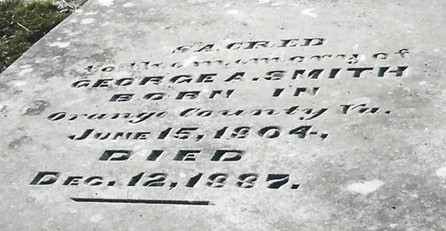 SACRED
to the memory of
GEORGE A. SMITH
BORN IN
Orange County Va.
June 15, 1804,
DIED
Dec. 12, 1887.